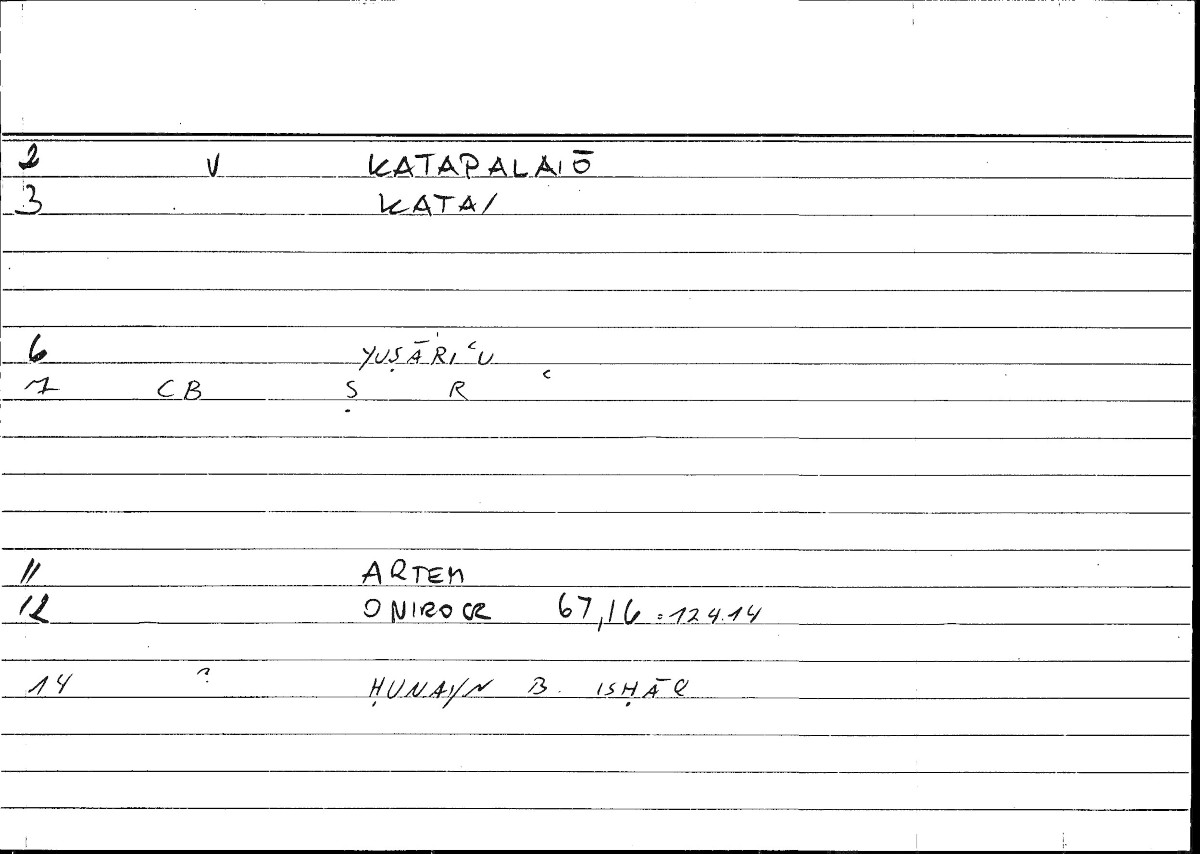 2 V KATAPALAIŌ
3 KATA/
6 YUṢĀRIʿU
7 CB Ṣ R ʿ
11 ARTEM
12 ONIROCR 67,16 = 124.14
14 ? ḤUNAYN B. ISḤĀQ